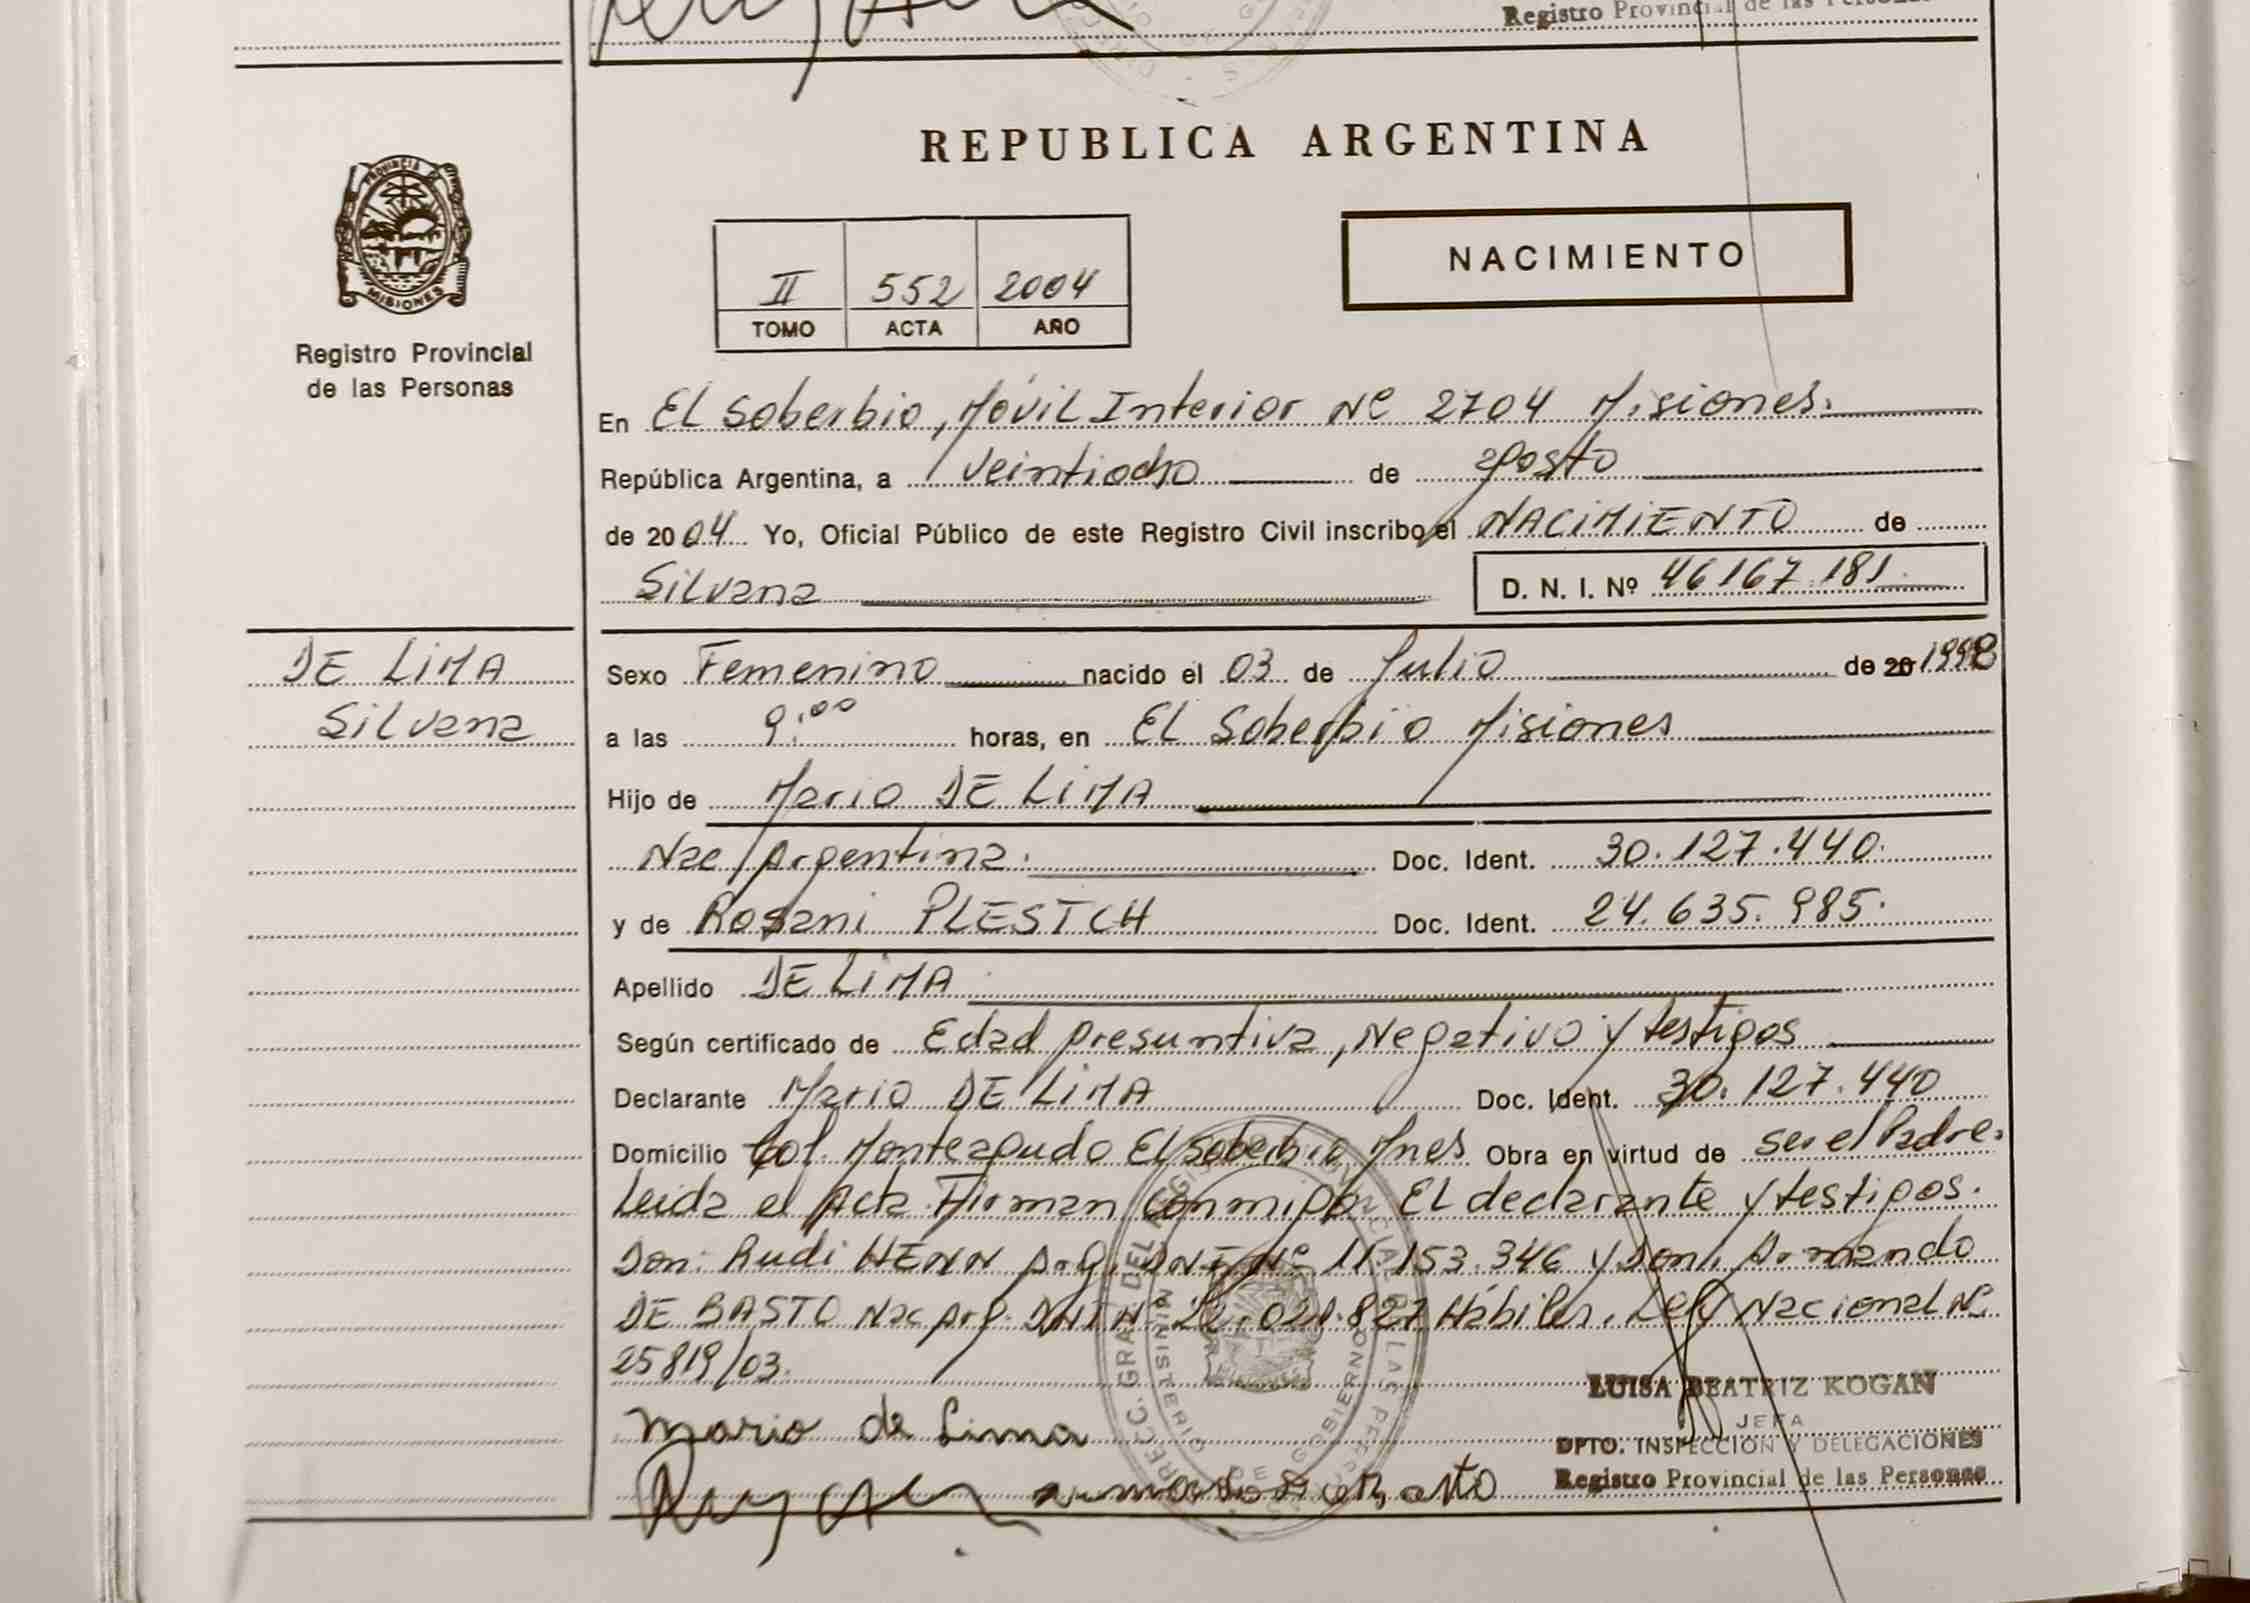 Registro Provincial de las Personas
REPUBLICA ARGENTINA
PROVINCIA DE
MISIONES
Registro Provincial
de las Personas
NACIMIENTO
II 552 2004
TOMO ACTA AÑO
En El Soberbio, Móvil Interior Nº 2704 Misiones.
República Argentina, a veintiocho de agosto
de 2004 Yo, Oficial Público de este Registro Civil inscribo el NACIMIENTO de
Silvana D. N. I. Nº 46167.181
DE LIMA
Silvana
Sexo Femenino nacido el 03 de Julio de 20 1998
a las 9:00 horas, en El Soberbio Misiones
Hijo de Mario DE LIMA
Nac Argentina. Doc. Ident. 30.127.440.
y de Rosani PLESTCH Doc. Ident. 24.635.985.
Apellido DE LIMA
Según certificado de Edad presuntiva, Negativo y testigos
Declarante Mario DE LIMA Doc. Ident. 30.127.440
Domicilio Col. Monteagudo El Soberbio Mnes Obra en virtud de ser el Padre.
Leida el Acta Firman conmigo El declarante y testigos.
Don: Rudi HENN Arg. DNI Nº 11.153.346 y Don. Armando
DE BASTO Nac Arg. DNI Nº 22.021.827 Hábiles. Ley Nacional Nº
25819/03.
Mario de Lima
LUISA BEATRIZ KOGAN
JEFA
DPTO. INSPECCION Y DELEGACIONES
Registro Provincial de las Personas